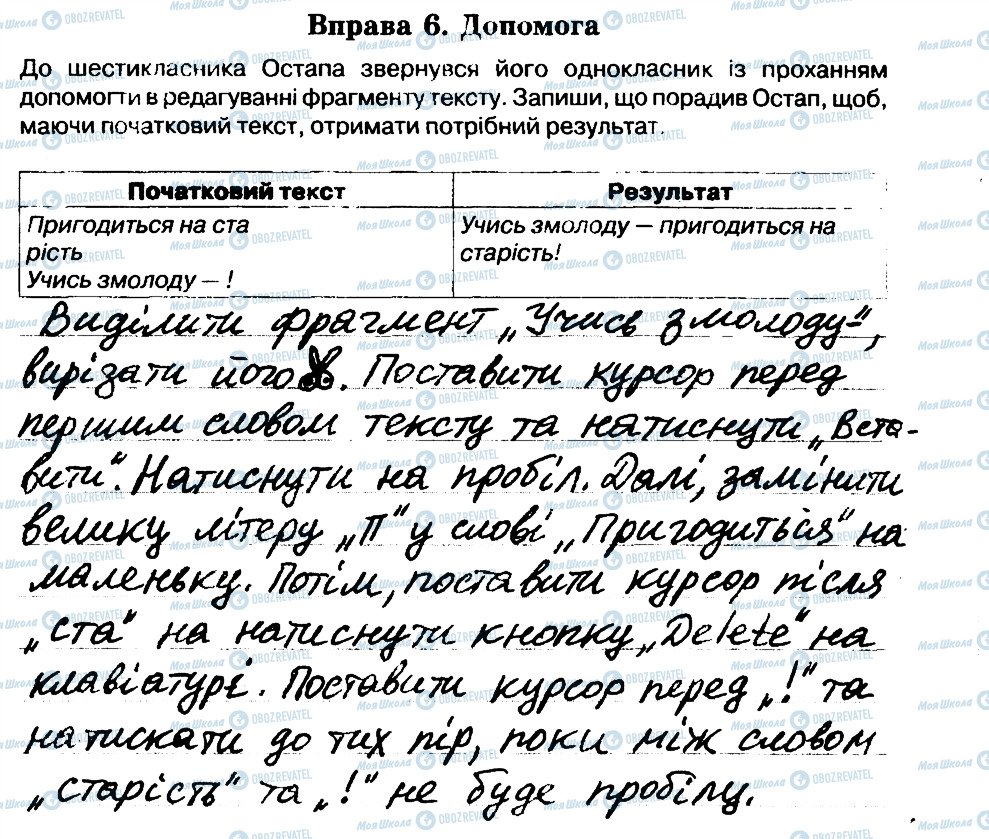 Вправа 6. Допомога
До шестикласника Остапа звернувся його однокласник із проханням
допомогти в редагуванні фрагменту тексту. Запиши, що порадив Остап, щоб,
маючи початковий текст, отримати потрібний результат.
Початковий текст
Пригодиться на ста
рість
Учись змолоду – !
Результат
Учись змолоду – пригодиться на
старість!
Виділити фрагмент „Учись змолоду-",
вирізати його. Поставити курсор перед
першим словом тексту та натиснути „Вста-
вити". Натиснути на пробіл. Далі, замінити
велику літеру „П" у слові „Пригодиться" на
маленьку. Потім, поставити курсор після
„ста" на натиснути кнопку „Delete" на
клавіатурі. Поставити курсор перед „!" та
натискати до тих пір, поки між словом
„старість" та „!" не буде пробілу.
МояШкола OBOZREVATEL